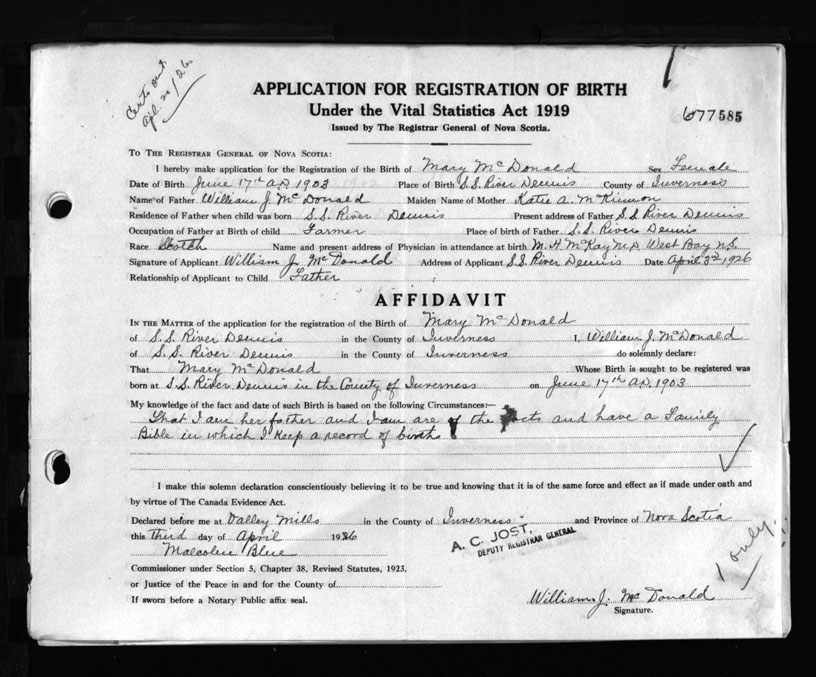 Certs out
Apl. 20/26
APPLICATION FOR REGISTRATION OF BIRTH
Under the Vital Statistics Act 1919
Issued by The Registrar General of Nova Scotia.
677585
TO THE REGISTRAR GENERAL OF NOVA SCOTIA:
I hereby make application for the Registration of the Birth of Mary McDonald Sex Female
Date of Birth June 17th A.D. 1903 Place of Birth S.S. River Dennis County of Inverness
Name of Father William J. McDonald Maiden Name of Mother Katie A. McKinnon
Residence of Father when child was born S.S. River Dennis Present address of Father S.S. River Dennis
Occupation of Father at Birth of child Farmer Place of birth of Father S.S. River Dennis
Race Scotch Name and present address of Physician in attendance at birth M. H. McKay M.D. West Bay N.S.
Signature of Applicant William J. McDonald Address of Applicant S.S. River Dennis Date April 3rd 1926
Relationship of Applicant to Child Father
AFFIDAVIT
IN THE MATTER of the application for the registration of the Birth of Mary McDonald
of S.S. River Dennis in the County of Inverness I, William J. McDonald
of S.S. River Dennis in the County of Inverness do solemnly declare:
That Mary McDonald Whose Birth is sought to be registered was
born at S.S. River Dennis in the County of Inverness on June 17th A.D. 1903
My knowledge of the fact and date of such Birth is based on the following Circumstances:—
That I am her father and I am are of the facts and have a Family
Bible in which I keep a record of births
I make this solemn declaration conscientiously believing it to be true and knowing that it is of the same force and effect as if made under oath and
by virtue of The Canada Evidence Act.
Declared before me at Valley Mills in the County of Inverness and Province of Nova Scotia
this third day of April 1926
A. C. JOST,
DEPUTY REGISTRAR GENERAL
Malcolm Blue
Commissioner under Section 5, Chapter 38, Revised Statutes, 1923,
or Justice of the Peace in and for the County of
If sworn before a Notary Public affix seal.
1 only.
William J. McDonald
Signature.